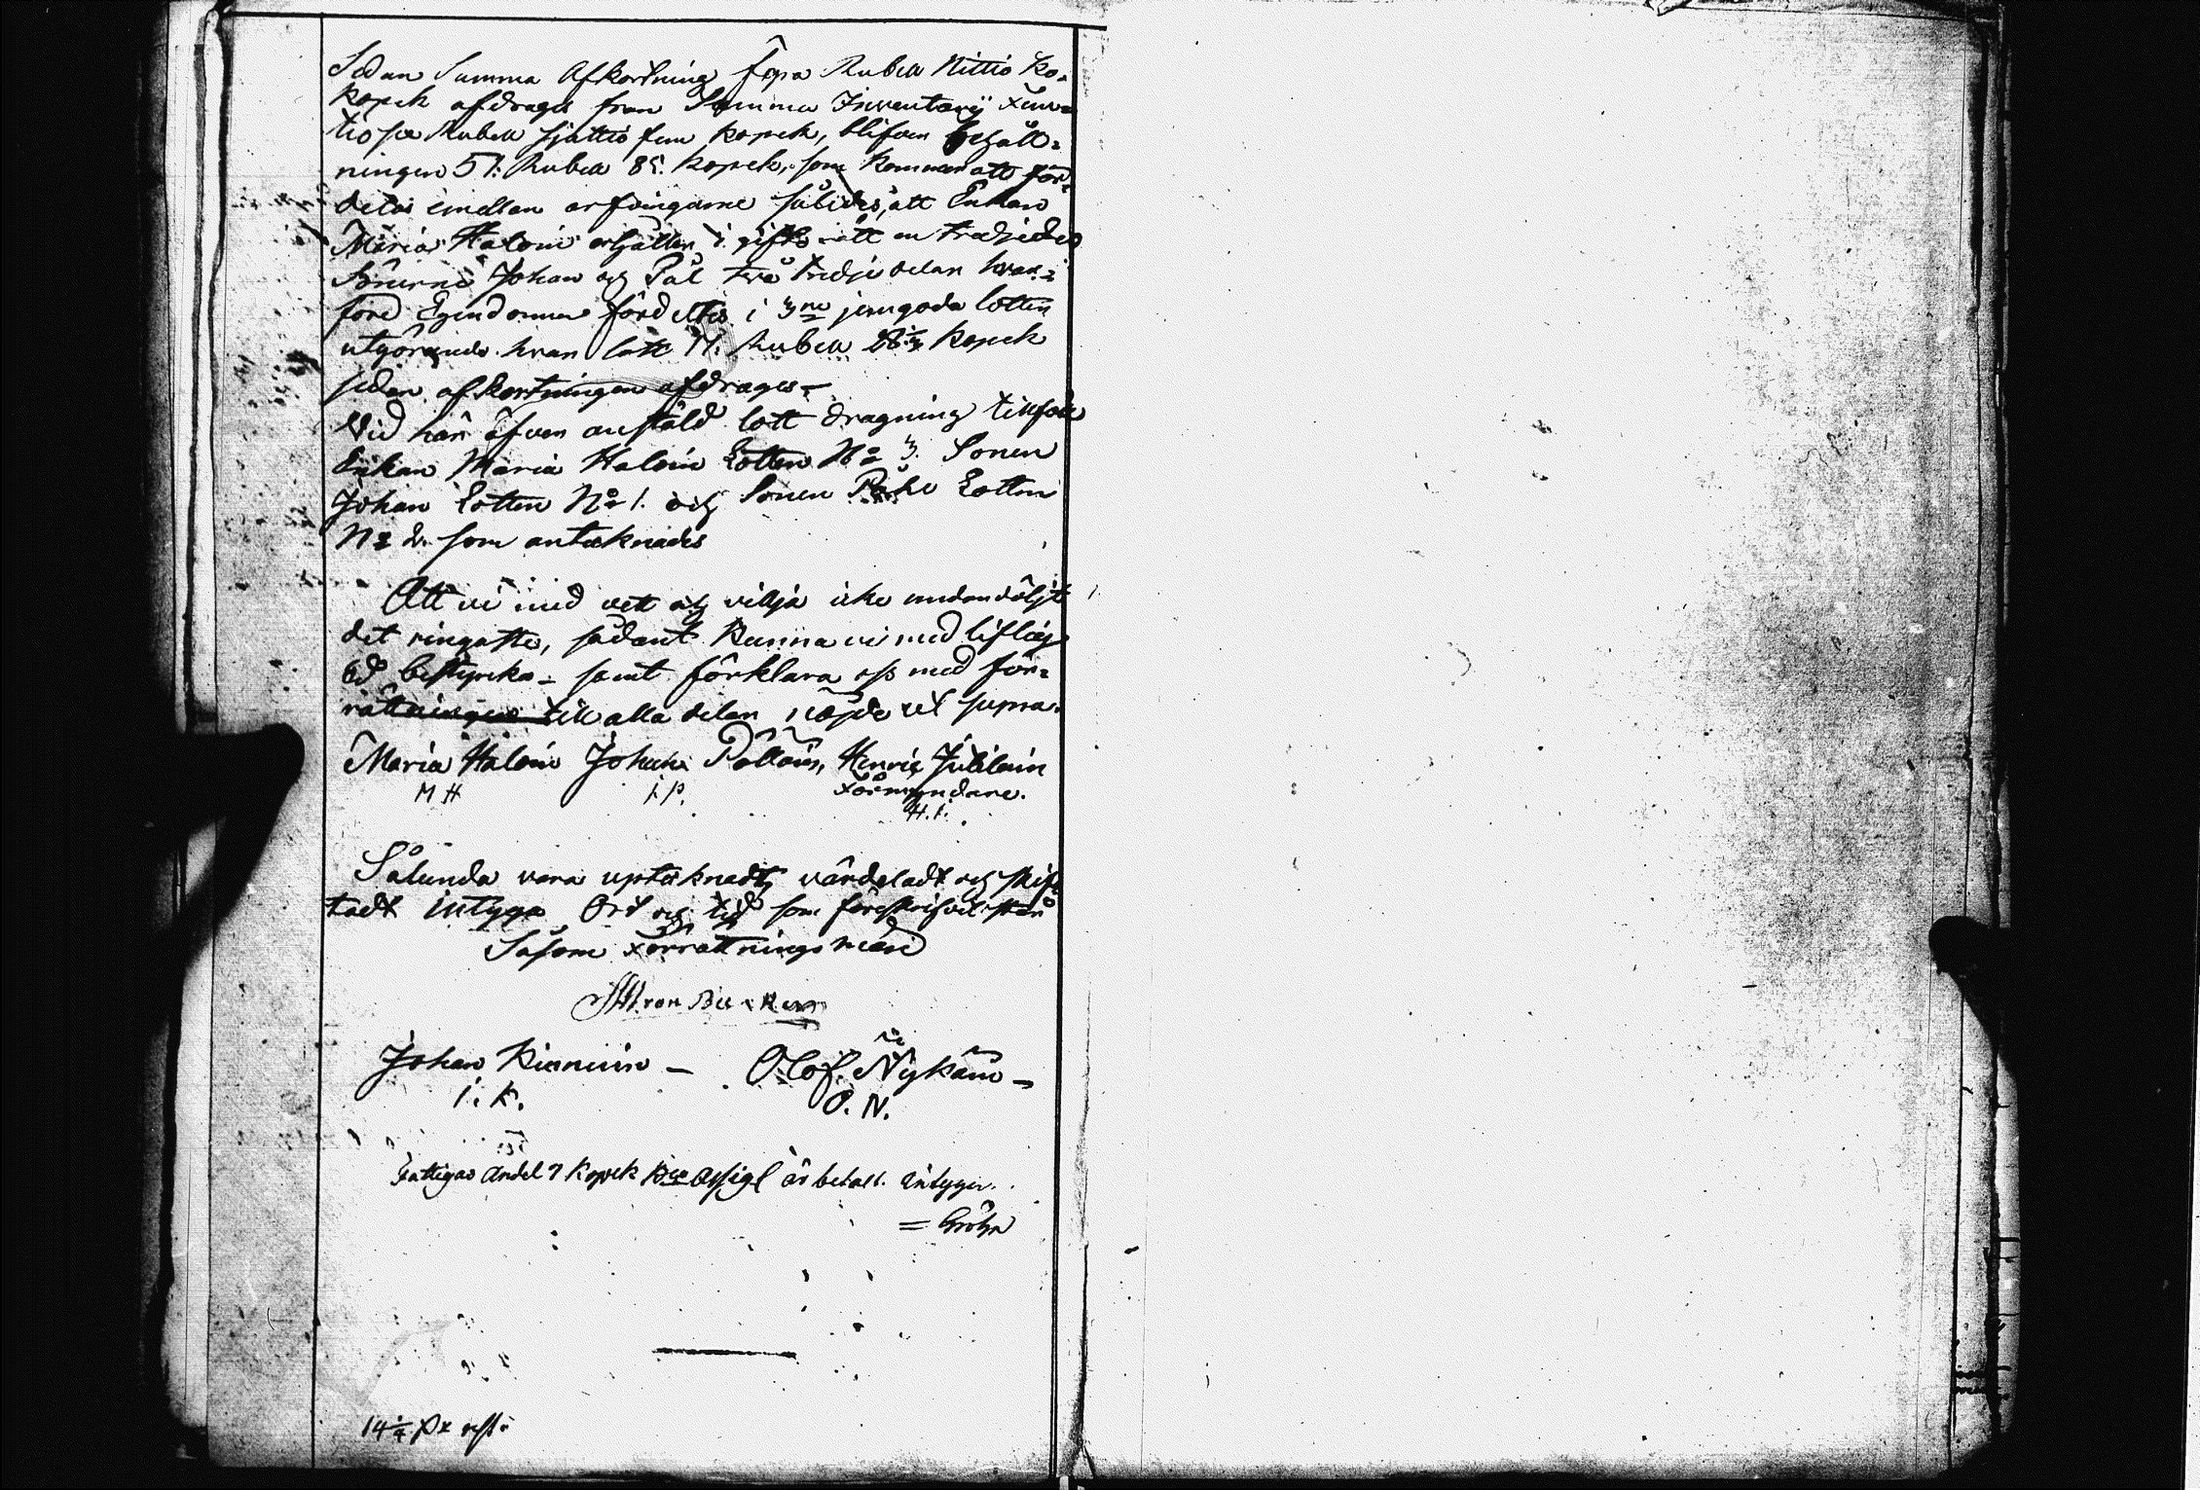 Sedan Summa Afkortning Rubel Nittio Ko-
kopek afdrages från Summa Inventarij Fem-
tio sex Rubel sjuttio fem kopek, blifver behåll-
ningen 51. Rubel 85. kopek, som kommer att för-
delas emellan arfvingarne således, att Enkan
Maria Haloin erhåller i giftorätt en tredjedel
Sönerne Johan och Pål två tredje delar hvar-
före Egendomen fördeltes i 3ne jemgoda lotter
utgörande hvar lott 17. Rubel 28 1/3 kopek
sedan afkortningen afdrages-
Vid här öfver anstäld lott dragning tillföll
Enkan Maria Haloin Lotten No 3. Sonen
Johan Lotten No 1. och Sonen Påhl Lotten
No 2. som antecknades
Att vi med vett och vilja icke undandöljt
det ringaste, sådant kunna vi med liflig
ed bestyrka - samt förklara oss med för-
rättningen till alla delar nöjde ut supra.
Maria Haloin Johan Pöllöin, Henric
M H I. P. Förmyndare.
H. I.
Sålunda vara uptecknadt, värderadt och skif-
tadt intyga Ort och tid som föreskrifvit står
Såsom Förrättningsmän
von Becker
Johan Kinnuin - Olof Nykäin -
I. K. O. N.
Fattigas Andel 7 kopek Bco Assign är betalt. intygar.
= Gröhn
14 1/4